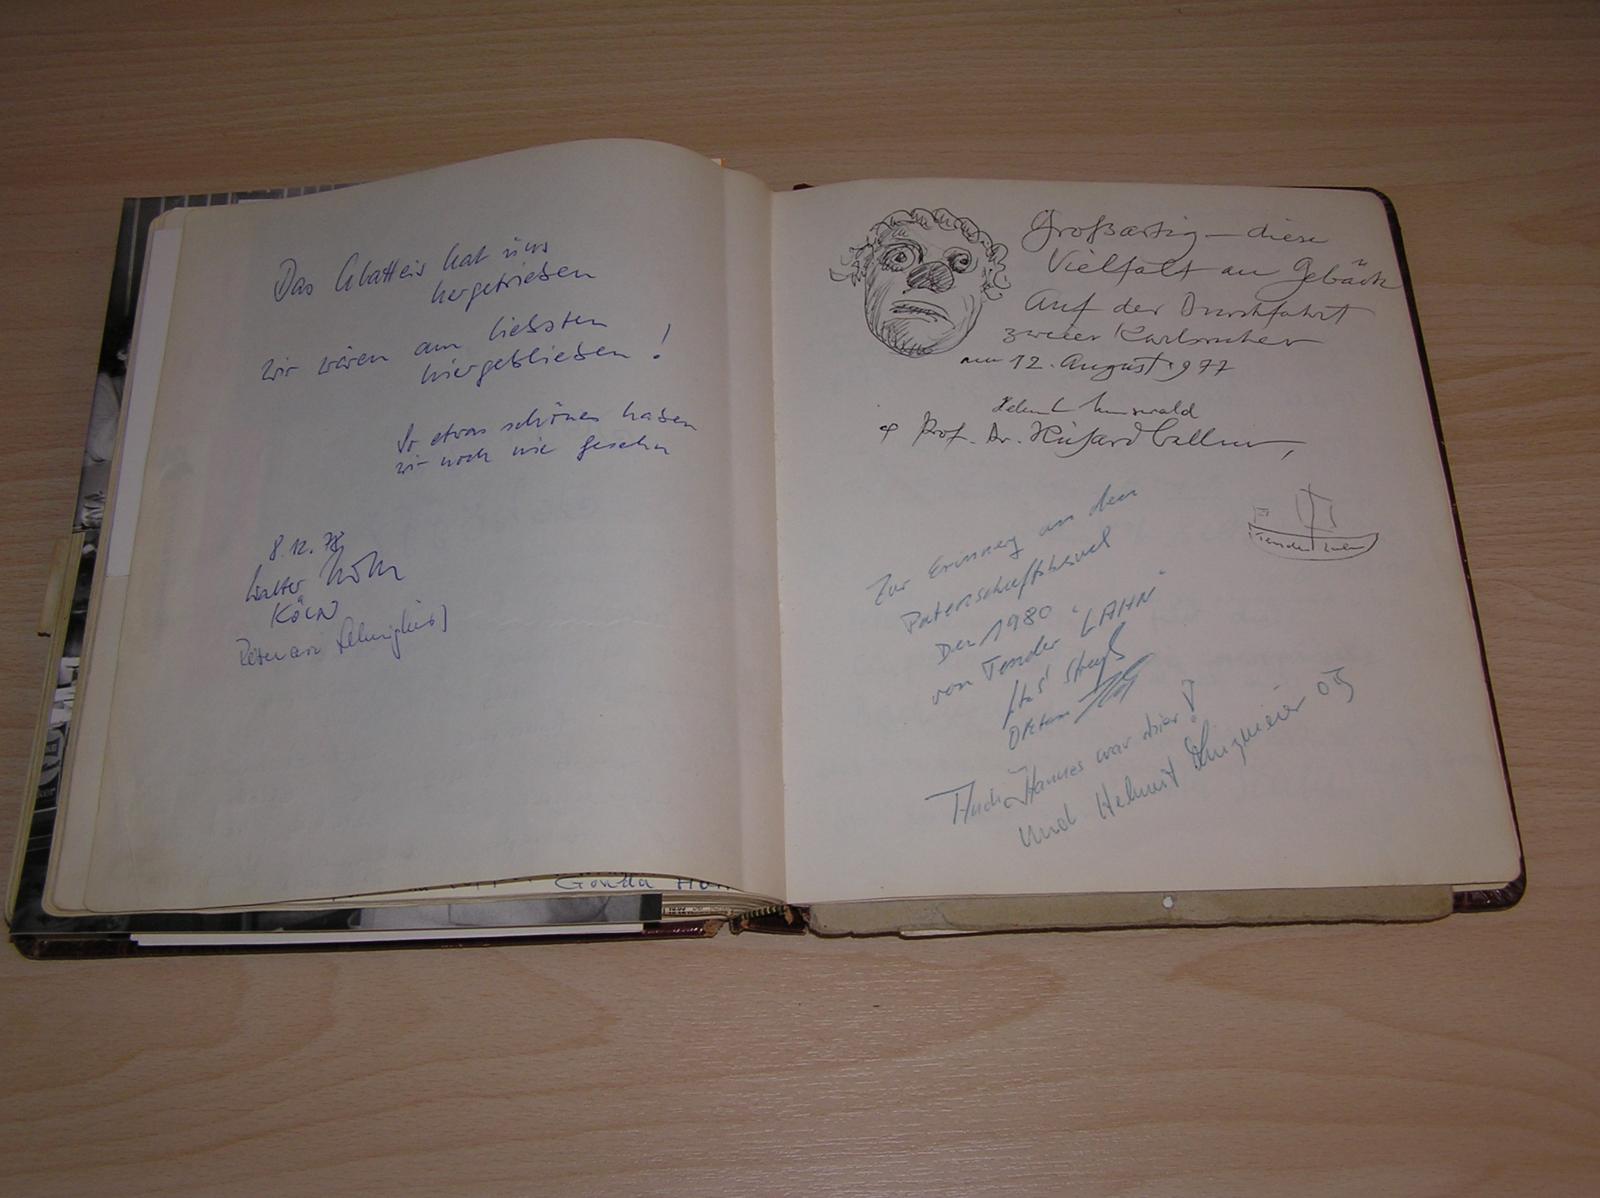 Das Glatteis hat uns
hergetrieben
wir wären am liebsten
hiergeblieben!
So etwas schönes haben
wir noch nie gesehn
8.12.78
Walter
KÖLN
Großartig – diese
Vielfalt an Gebäck
Auf der Durchfahrt
zweier Karlsruher
am 12. August 1977
Prof. Dr.
Tender Lahn
Zur Erinnerg an den
Patenschaftsbesuch
Den 1980
von Tender "LAHN"
war hier!
und Helmut 05
Gonda